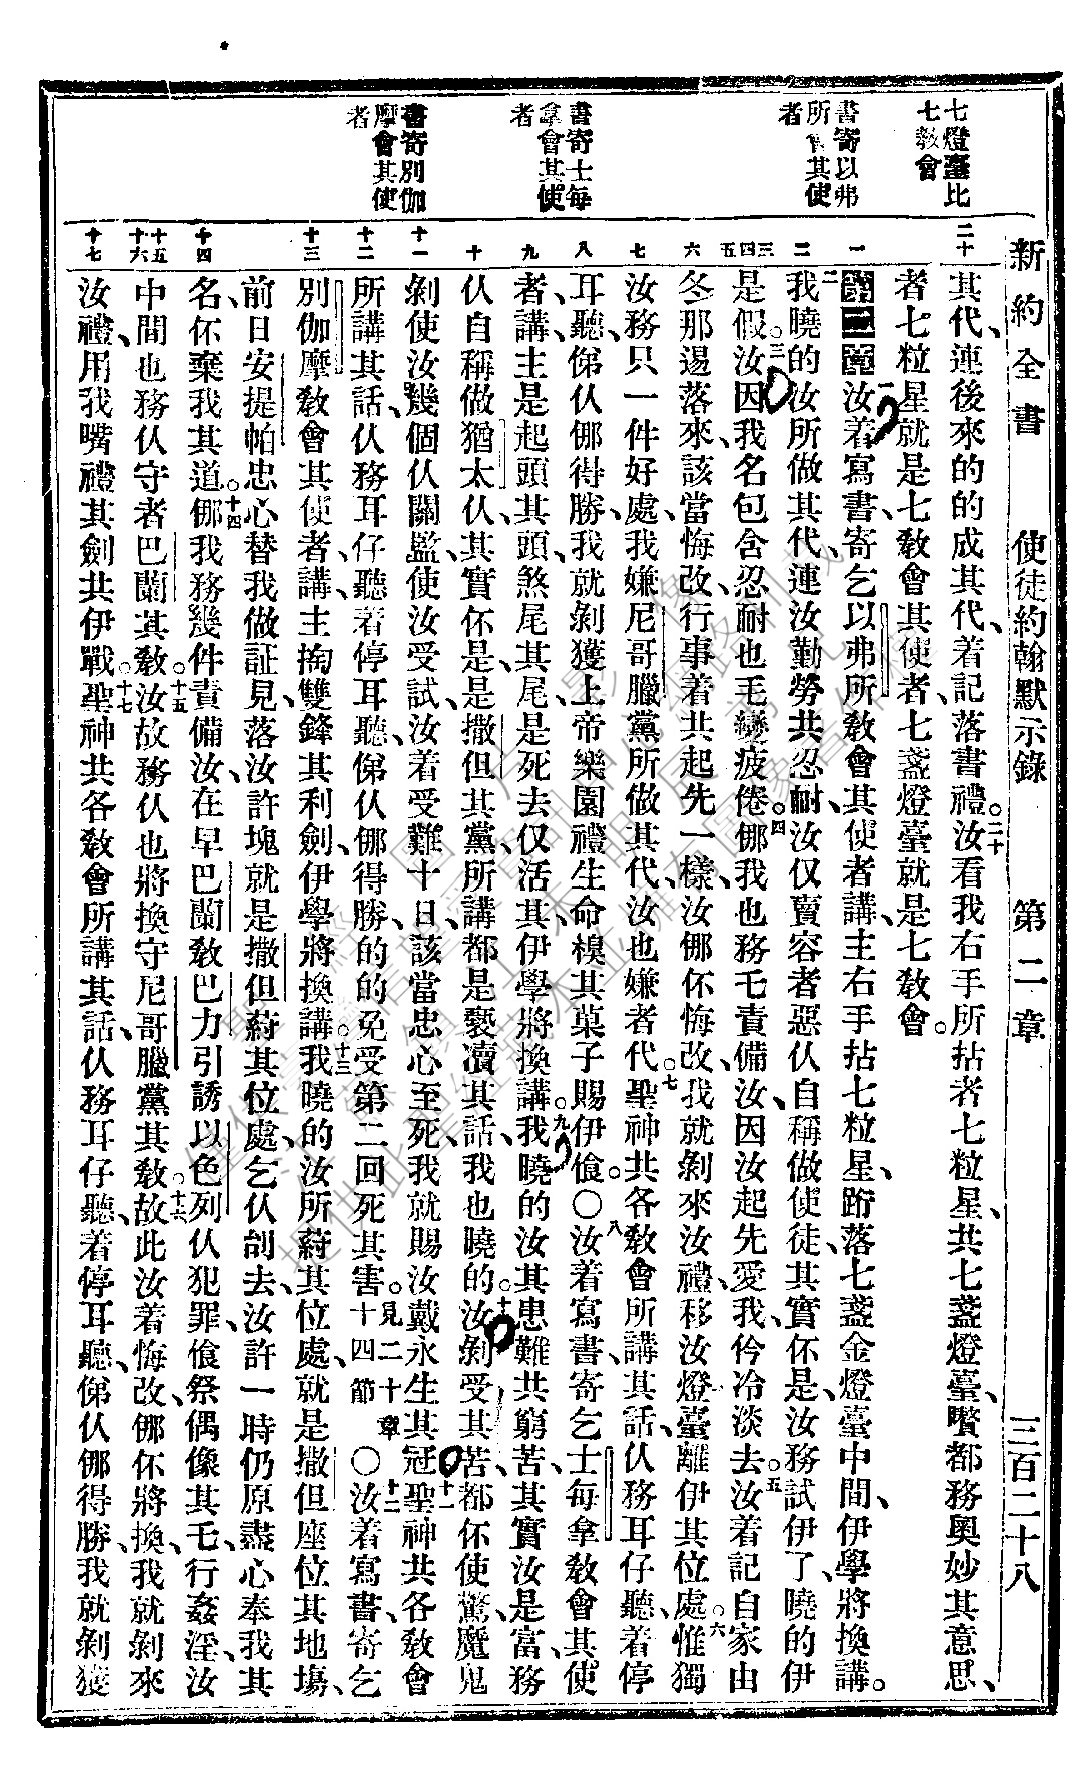 新約全書　使徒約翰默示錄　第二章　三百二十八
七燈臺比
七教會
書寄以弗
所會其使
者
書寄士每
拿會其使
者
書寄別伽
摩會其使
者
二十
一
二
三
四
五
六
七
八
九
十
十一
十二
十三
十四
十五
十六
十七
其代、連後來的的成其代、着記落書禮。二十汝看我右手所拈者七粒星、共七盞燈臺、嘴都務奧妙其意思、
者七粒星就是七教會其使者、七盞燈臺就是七教會。
第二章一汝着寫書、寄乞以弗所教會其使者講、主右手拈七粒星、跡落七盞金燈臺中間、伊學將換講。
二我曉的汝所做其代、連汝勤勞共忍耐、汝仅賣容者惡仈自稱做使徒、其實伓是、汝務試伊了、曉的伊
是假。三汝因我名包含忍耐也毛變疲倦。四㑚我也務乇責備汝、因汝起先愛我、伶冷淡去。五汝着記自家由
冬那邊落來、該當悔改、行事着共起先一樣、汝㑚伓悔改、我就剝來汝禮、移汝燈臺離伊其位處。六惟獨
汝務只一件好處、我嫌尼哥臘黨所做其代、汝也嫌者代。七聖神共各教會所講其話、仈務耳仔聽、着停
耳聽、俤仈㑚得勝、我就剝獲上帝樂園禮生命樹其菓子賜伊飡。〇八汝着寫書、寄乞士每拿教會其使
者講、主是起頭其頭、煞尾其尾、是死去仅活其、伊學將換講。九我曉的汝其患難共窮苦、其實汝是富、務
仈自稱做猶太仈、其實伓是、是撒但其黨、所講都是褻瀆其話、我也曉的。十汝剝受其苦、都伓使驚、魔鬼
剝使汝幾個仈關監、使汝受試、汝着受難十日、該當忠心至死、我就賜汝戴永生其冠。十一聖神共各教會
所講其話、仈務耳仔聽、着停耳聽、俤仈㑚得勝的的免受第二回死其害。見二十章十四節〇十二汝着寫書、寄乞
別伽摩教會其使者講、主掏雙鋒其利劍、伊學將換講。十三我曉的汝所蒔其位處、就是撒但座位其地塲、
前日安提帕忠心替我做証見、落汝許塊就是撒但蒔其位處、乞仈刣去、汝許一時仍原盡心奉我其
名、伓棄我其道。十四㑚我務幾件責備汝、在早巴蘭教巴力引誘以色列仈犯罪、飡祭偶像其乇、行姦淫、汝
中間也務仈守者巴蘭其教。十五汝故務仈也將換守尼哥臘黨其教。十六故此汝着悔改、㑚伓將換、我就剝來
汝禮、用我嘴禮其劍共伊戰。十七聖神共各教會所講其話、仈務耳仔聽、着停耳聽、俤仈㑚得勝、我就剝獲